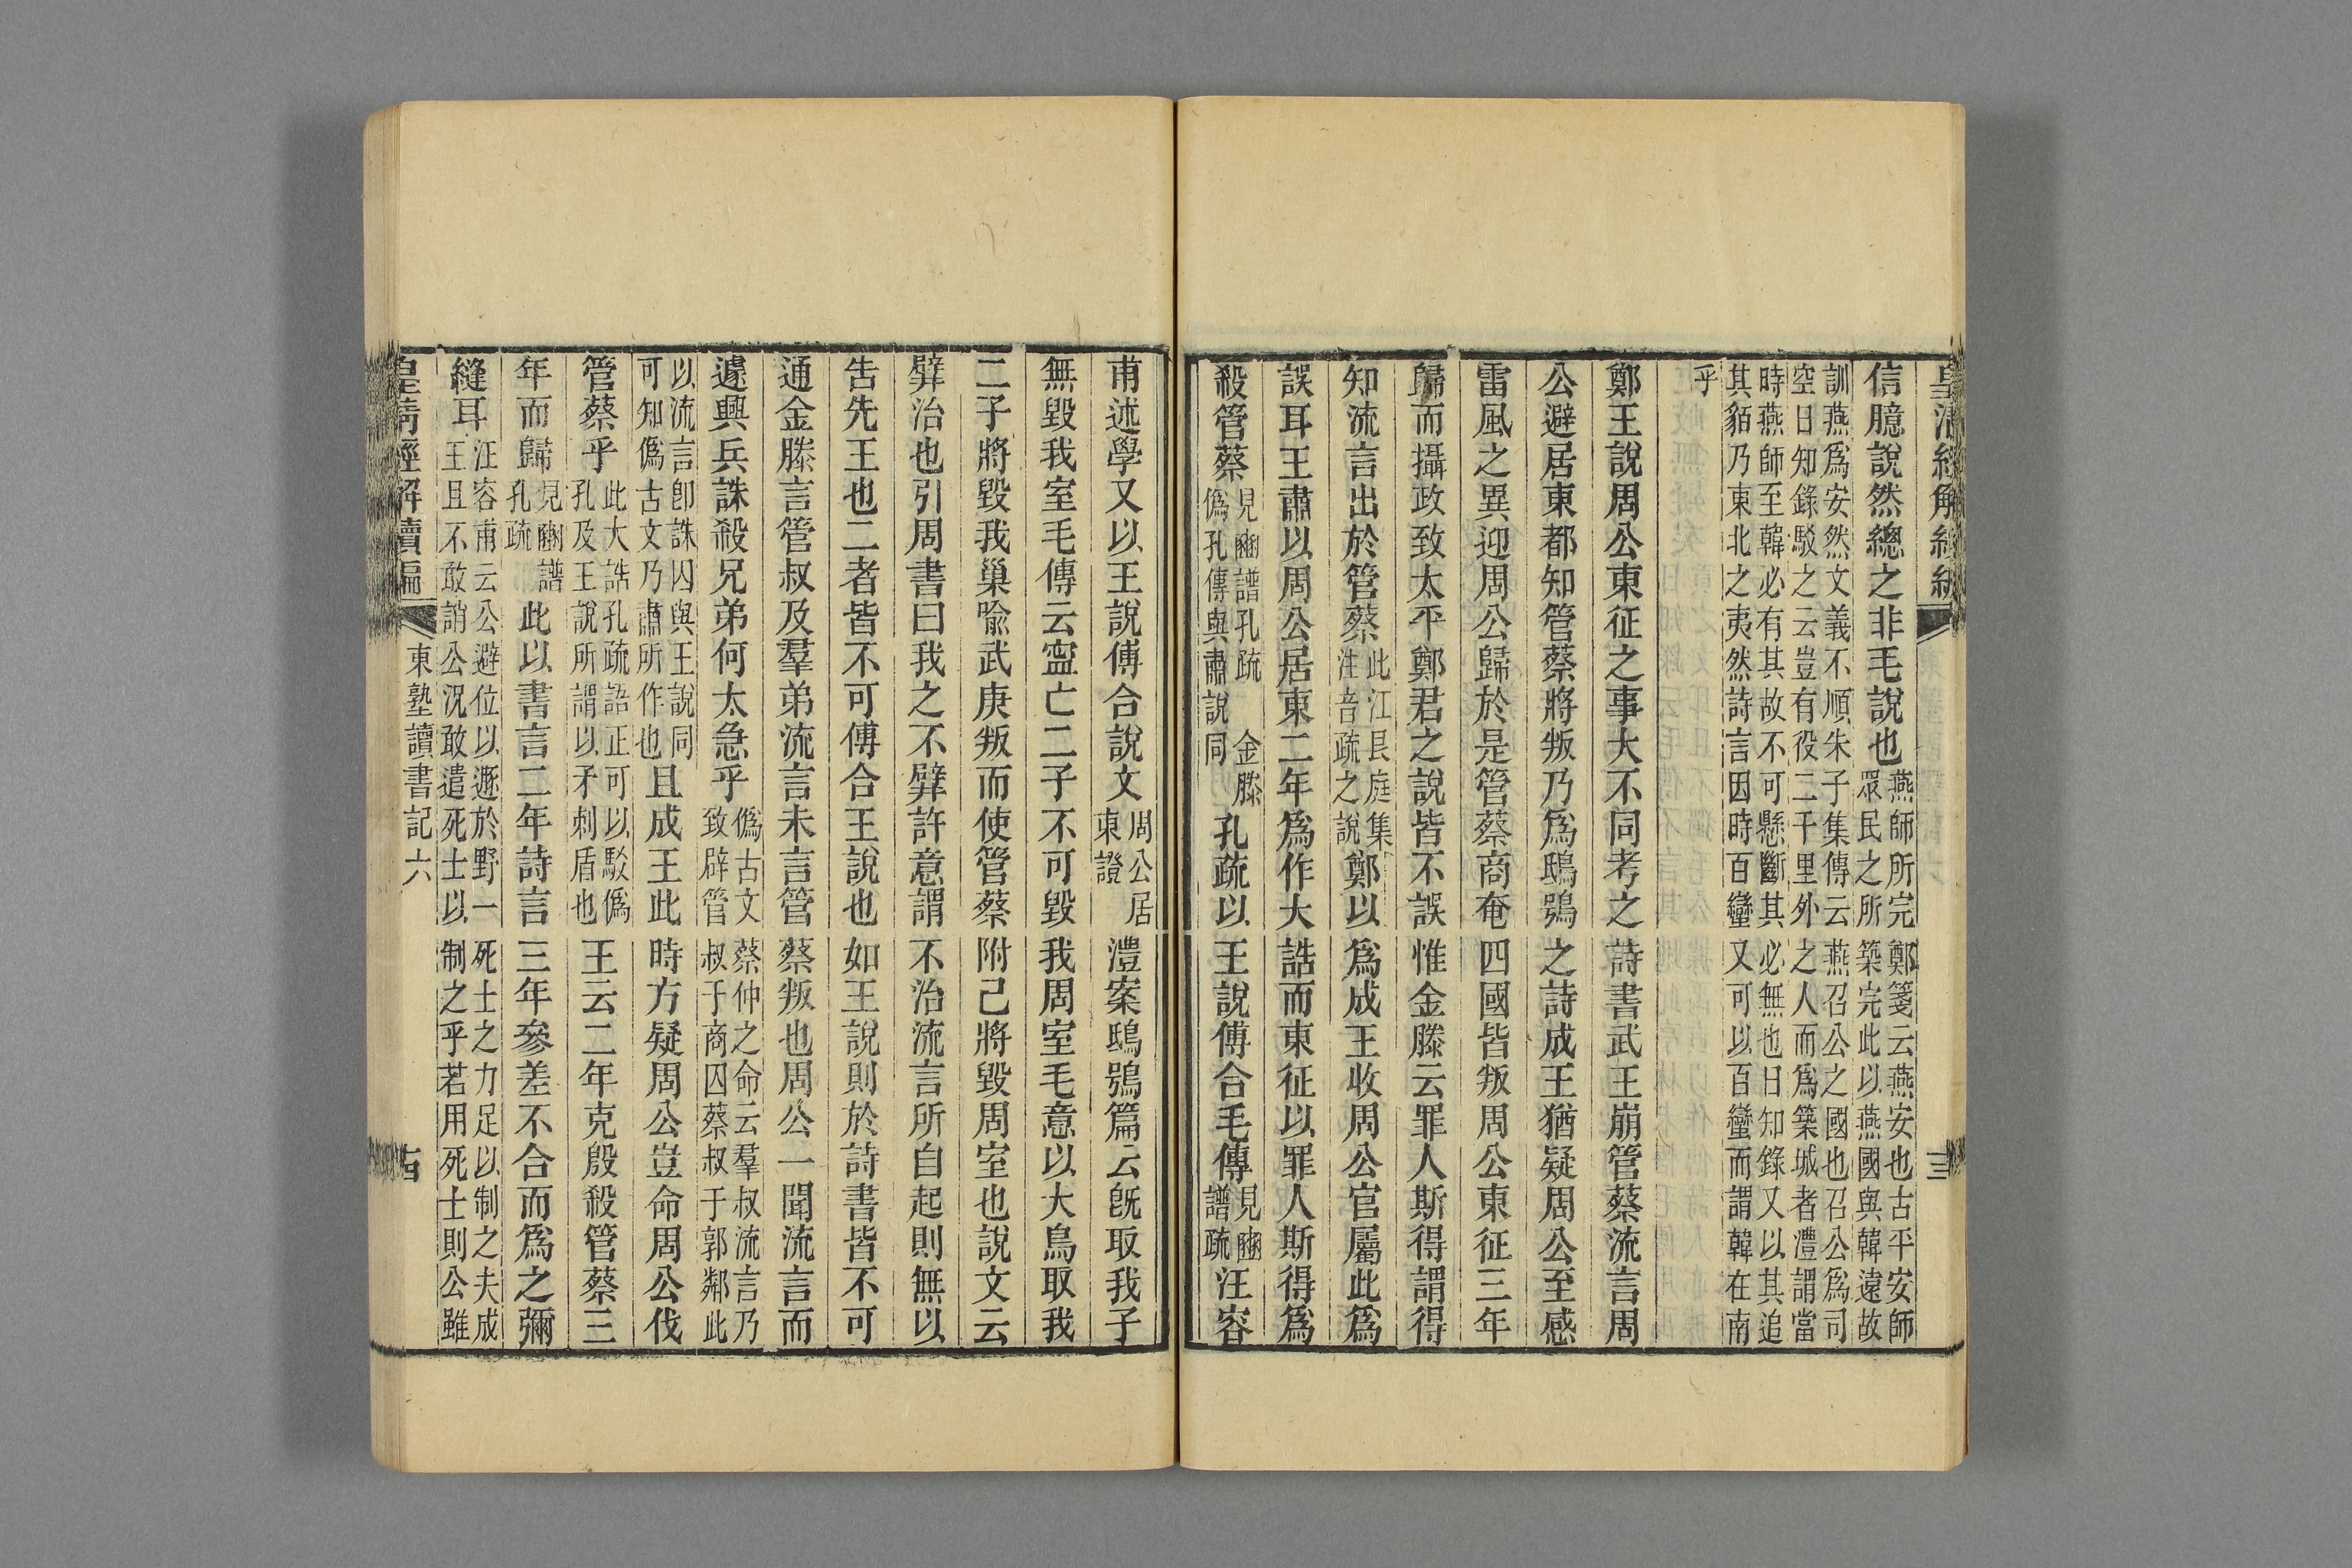 皇清經解續編
三
信臆說然總之非毛說也燕師所完鄭箋云燕安也古平安師
眾民之所築完此以燕國與韓遠故
訓燕爲安然文義不順朱子集傳云燕召公之國也召公爲司
空日知錄駁之云豈有役二千里外之人而爲築城者澧謂當
時燕師至韓必有其故不可懸斷其必無也日知錄又以其追
其貊乃東北之夷然詩言因時百蠻又可以百蠻而謂韓在南
乎
鄭王說周公東征之事大不同考之詩書武王崩管蔡流言周
公避居東都知管蔡將叛乃爲鴟鴞之詩成王猶疑周公至感
雷風之異迎周公歸於是管蔡商奄四國皆叛周公東征三年
歸而攝政致太平鄭君之說皆不誤惟金縢云罪人斯得謂得
知流言出於管蔡此江艮庭集
注音疏之說鄭以爲成王收周公官屬此爲
誤耳王肅以周公居東二年爲作大誥而東征以罪人斯得爲
殺管蔡見豳譜孔疏 金縢
僞孔傳與肅說同孔疏以王說傅合毛傳見豳
譜疏汪容
甫述學又以王說傅合說文周公居
東證澧案鴟鴞篇云旣取我子
無毀我室毛傳云寍亡二子不可毀我周室毛意以大鳥取我
二子將毀我巢喩武庚叛而使管蔡附己將毀周室也說文云
㢸治也引周書曰我之不㢸許意謂不治流言所自起則無以
告先王也二者皆不可傅合王說也如王說則於詩書皆不可
通金縢言管叔及羣弟流言未言管蔡叛也周公一聞流言而
遽興兵誅殺兄弟何太急乎僞古文蔡仲之命云羣叔流言乃
致辟管叔于商囚蔡叔于郭鄰此
以流言卽誅囚與王說同
可知僞古文乃肅所作也且成王此時方疑周公豈命周公伐
管蔡乎此大誥孔疏語正可以駁僞
孔及王說所謂以矛刺盾也王云二年克殷殺管蔡三
年而歸見豳譜
孔疏此以書言二年詩言三年參差不合而爲之彌
縫耳汪容甫云公避位以遯於野一死士之力足以制之夫成
王且不敢誚公況敢遣死士以制之乎若用死士則公雖
皇淸經解續編
東塾讀書記六
古